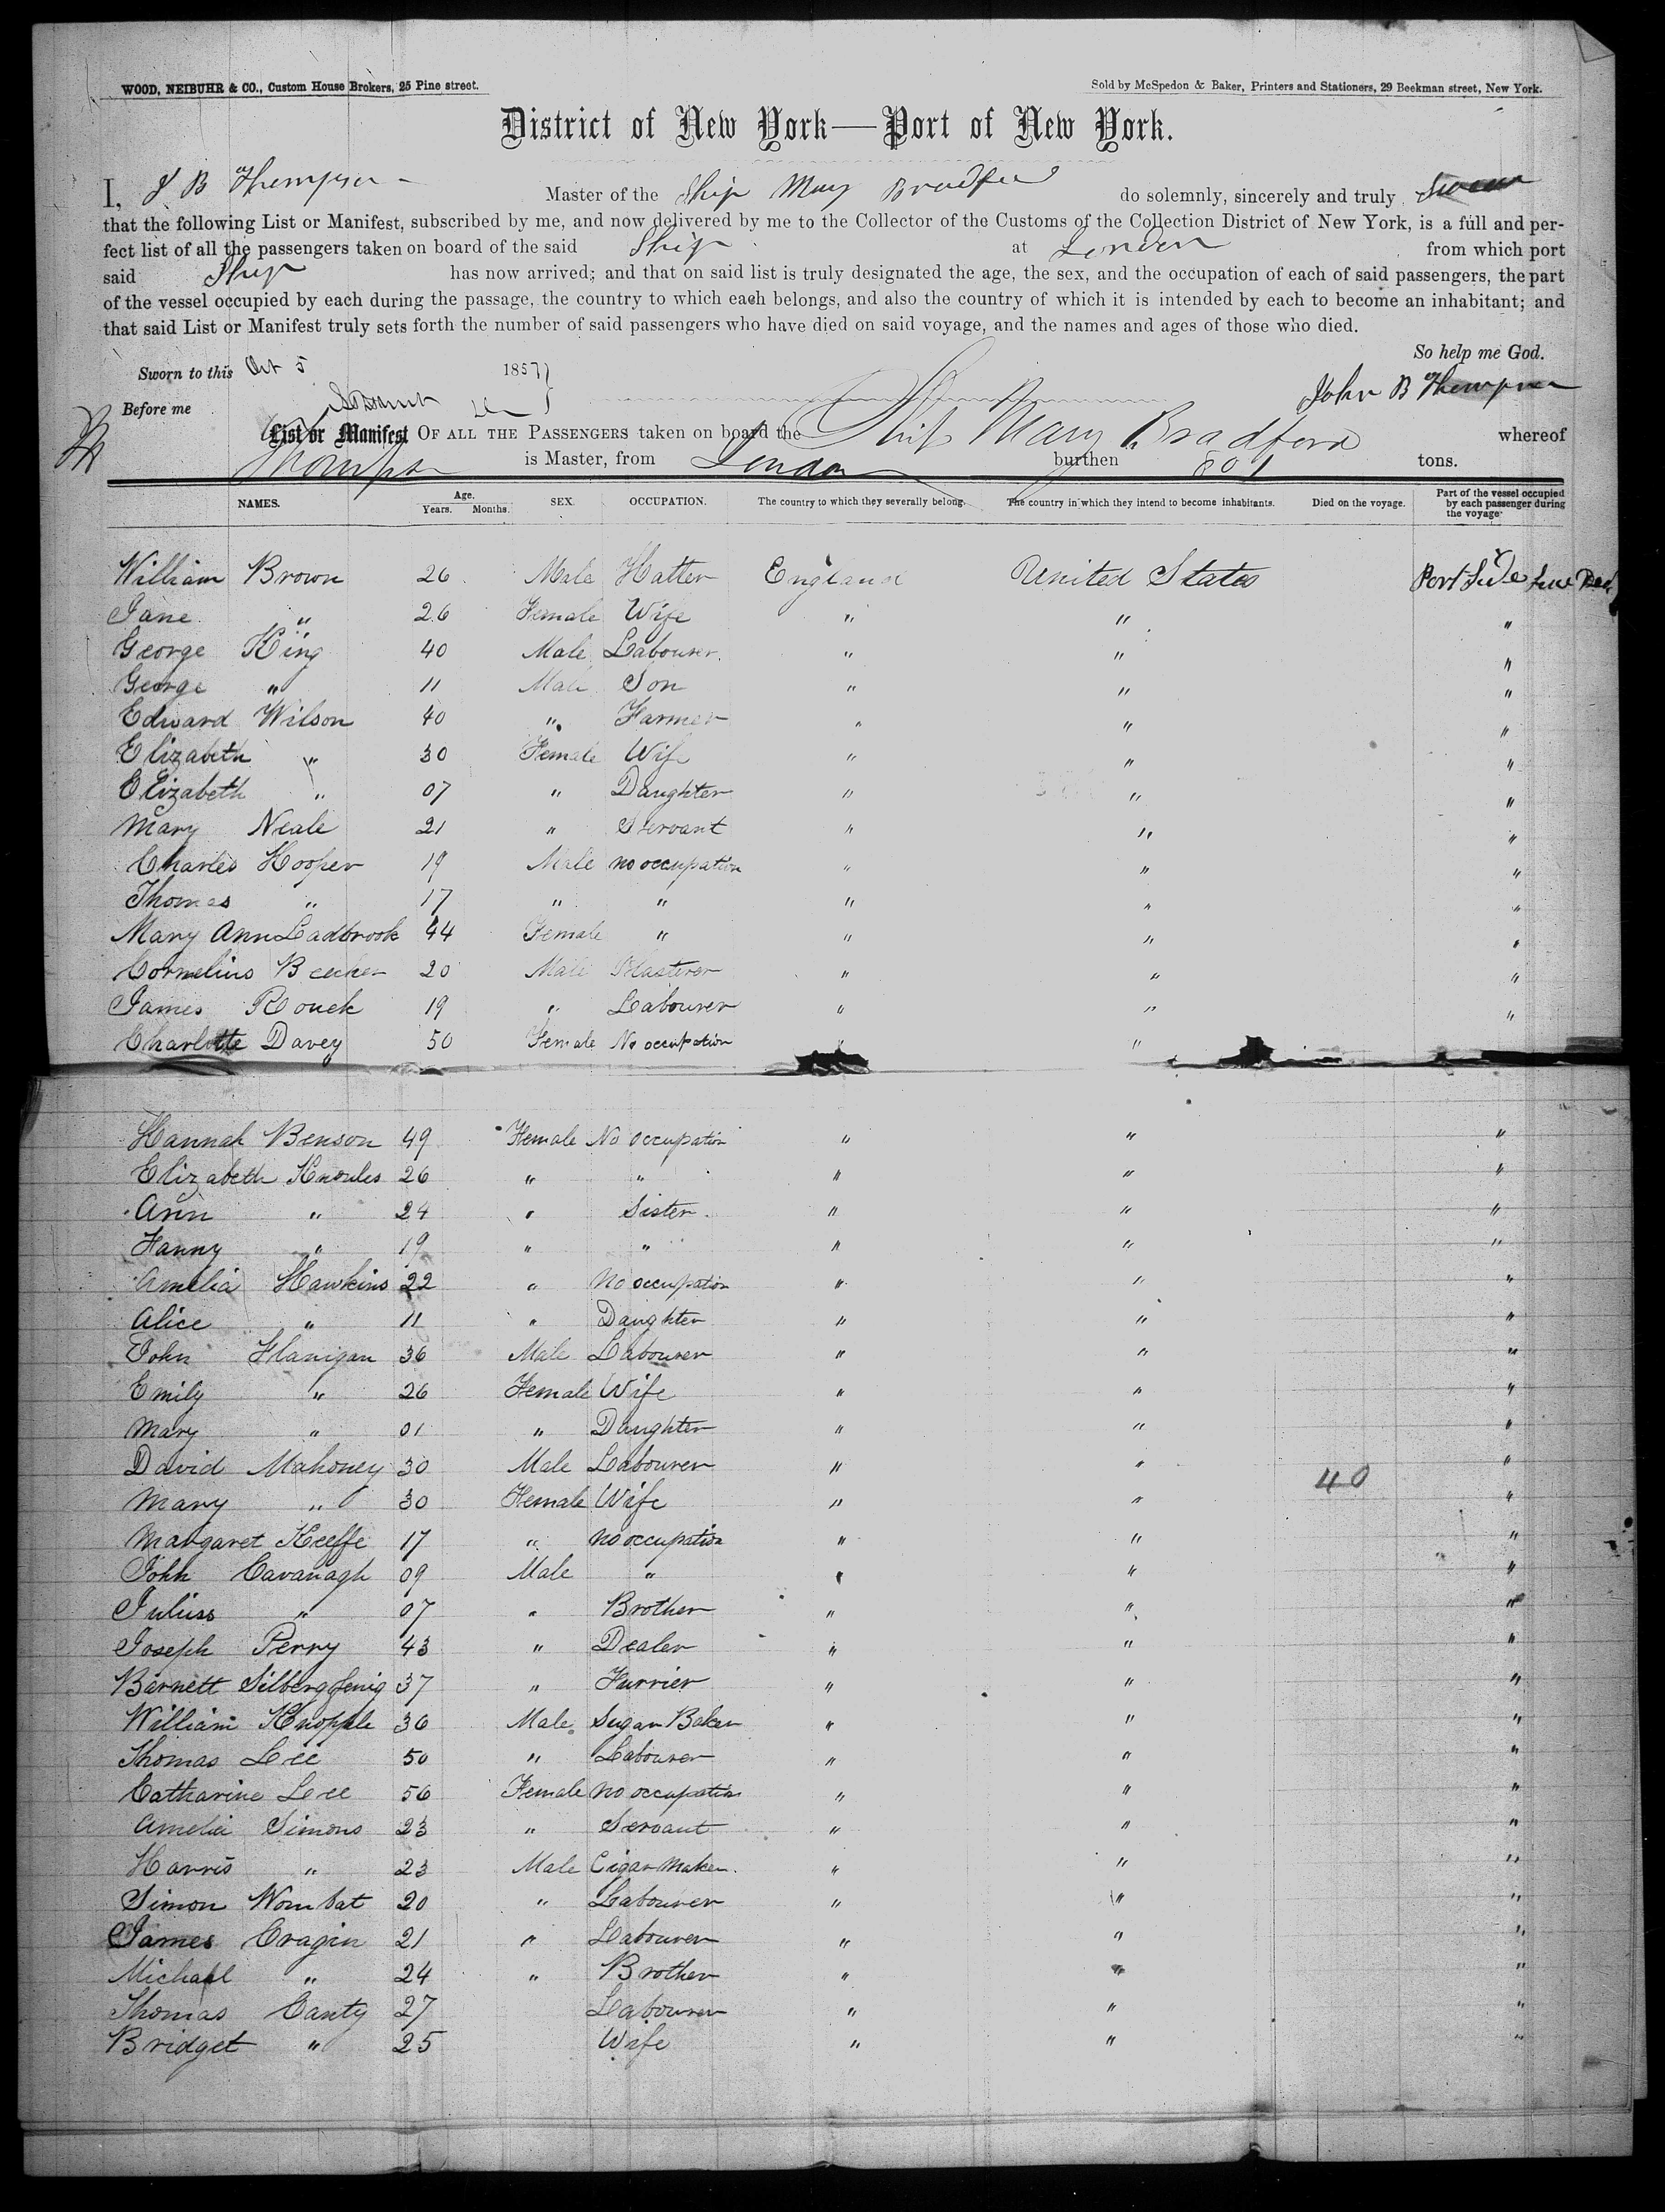 WOOD, NEIBUHR & CO., Custom House Brokers, 25 Pine street.
Sold by McSpedon & Baker, Printers and Stationers, 29 Beekman street, New York.
District of New York—Port of New York.
I, J B Thompson Master of the Ship Mary Bradford do solemnly, sincerely and truly Swear
that the following List or Manifest, subscribed by me, and now delivered by me to the Collector of the Customs of the Collection District of New York, is a full and per-
fect list of all the passengers taken on board of the said Ship at London from which port
said Ship has now arrived; and that on said list is truly designated the age, the sex, and the occupation of each of said passengers, the part
of the vessel occupied by each during the passage, the country to which each belongs, and also the country of which it is intended by each to become an inhabitant; and
that said List or Manifest truly sets forth the number of said passengers who have died on said voyage, and the names and ages of those who died.
So help me God.
Sworn to this Oct 5 1857
John B Thompson
Before me
List or Manifest OF ALL THE PASSENGERS taken on board the Ship Mary Bradford whereof
Thompson is Master, from London burthen tons.
NAMES. Age. Years. Months. SEX. OCCUPATION. The country to which they severally belong. The country in which they intend to become inhabitants. Died on the voyage. Part of the vessel occupied by each passenger during the voyage
William Brown 26 Male Hatter England United States Port Side
Jane " 26 Female Wife " " "
George King 40 Male Labourer " " "
George " 11 Male Son " " "
Edward Wilson 40 " Farmer " " "
Elizabeth " 30 Female Wife " " "
Elizabeth " 07 " Daughter " " "
Mary Neale 21 " Servant " " "
Charles Hooper 19 Male no occupation " " "
Thomas " 17 " " " " "
Mary Ann Ladbrook 44 Female " " " "
Cornelius Becker 20 Male Plasterer " " "
James Rouck 19 " Labourer " " "
Charlotte Davey 50 Female No occupation " "
Hannah Benson 49 Female No occupation " " "
Elizabeth Knowles 26 " " " " "
Ann " 24 " Sister " " "
Fanny " 19 " " " " "
Amelia Hawkins 22 " No occupation " " "
Alice " 11 " Daughter " " "
John Flanigan 36 Male Labourer " " "
Emily " 26 Female Wife " " "
Mary " 01 " Daughter " " "
David Mahoney 30 Male Labourer " " "
40
Mary " 30 Female Wife " " "
Margaret Keeffe 17 " no occupation " " "
John Cavanagh 09 Male " " " "
Juliuss " 07 " Brother " " "
Joseph Perry 43 " Dealer " " "
Barnett 37 " Furrier " " "
William Knopple 36 Male Sugar Baker " " "
Thomas Lee 50 " Labourer " " "
Catharine Lee 56 Female no occupation " " "
Amelia Simons 23 " Servant " " "
Harris " 23 Male Cigar Maker " " "
Simon Wombat 20 " Labourer " " "
James Cragin 21 " Labourer " " "
Michael " 24 " Brother " " "
Thomas Canty 27 Labourer " " "
Bridget " 25 Wife " " "